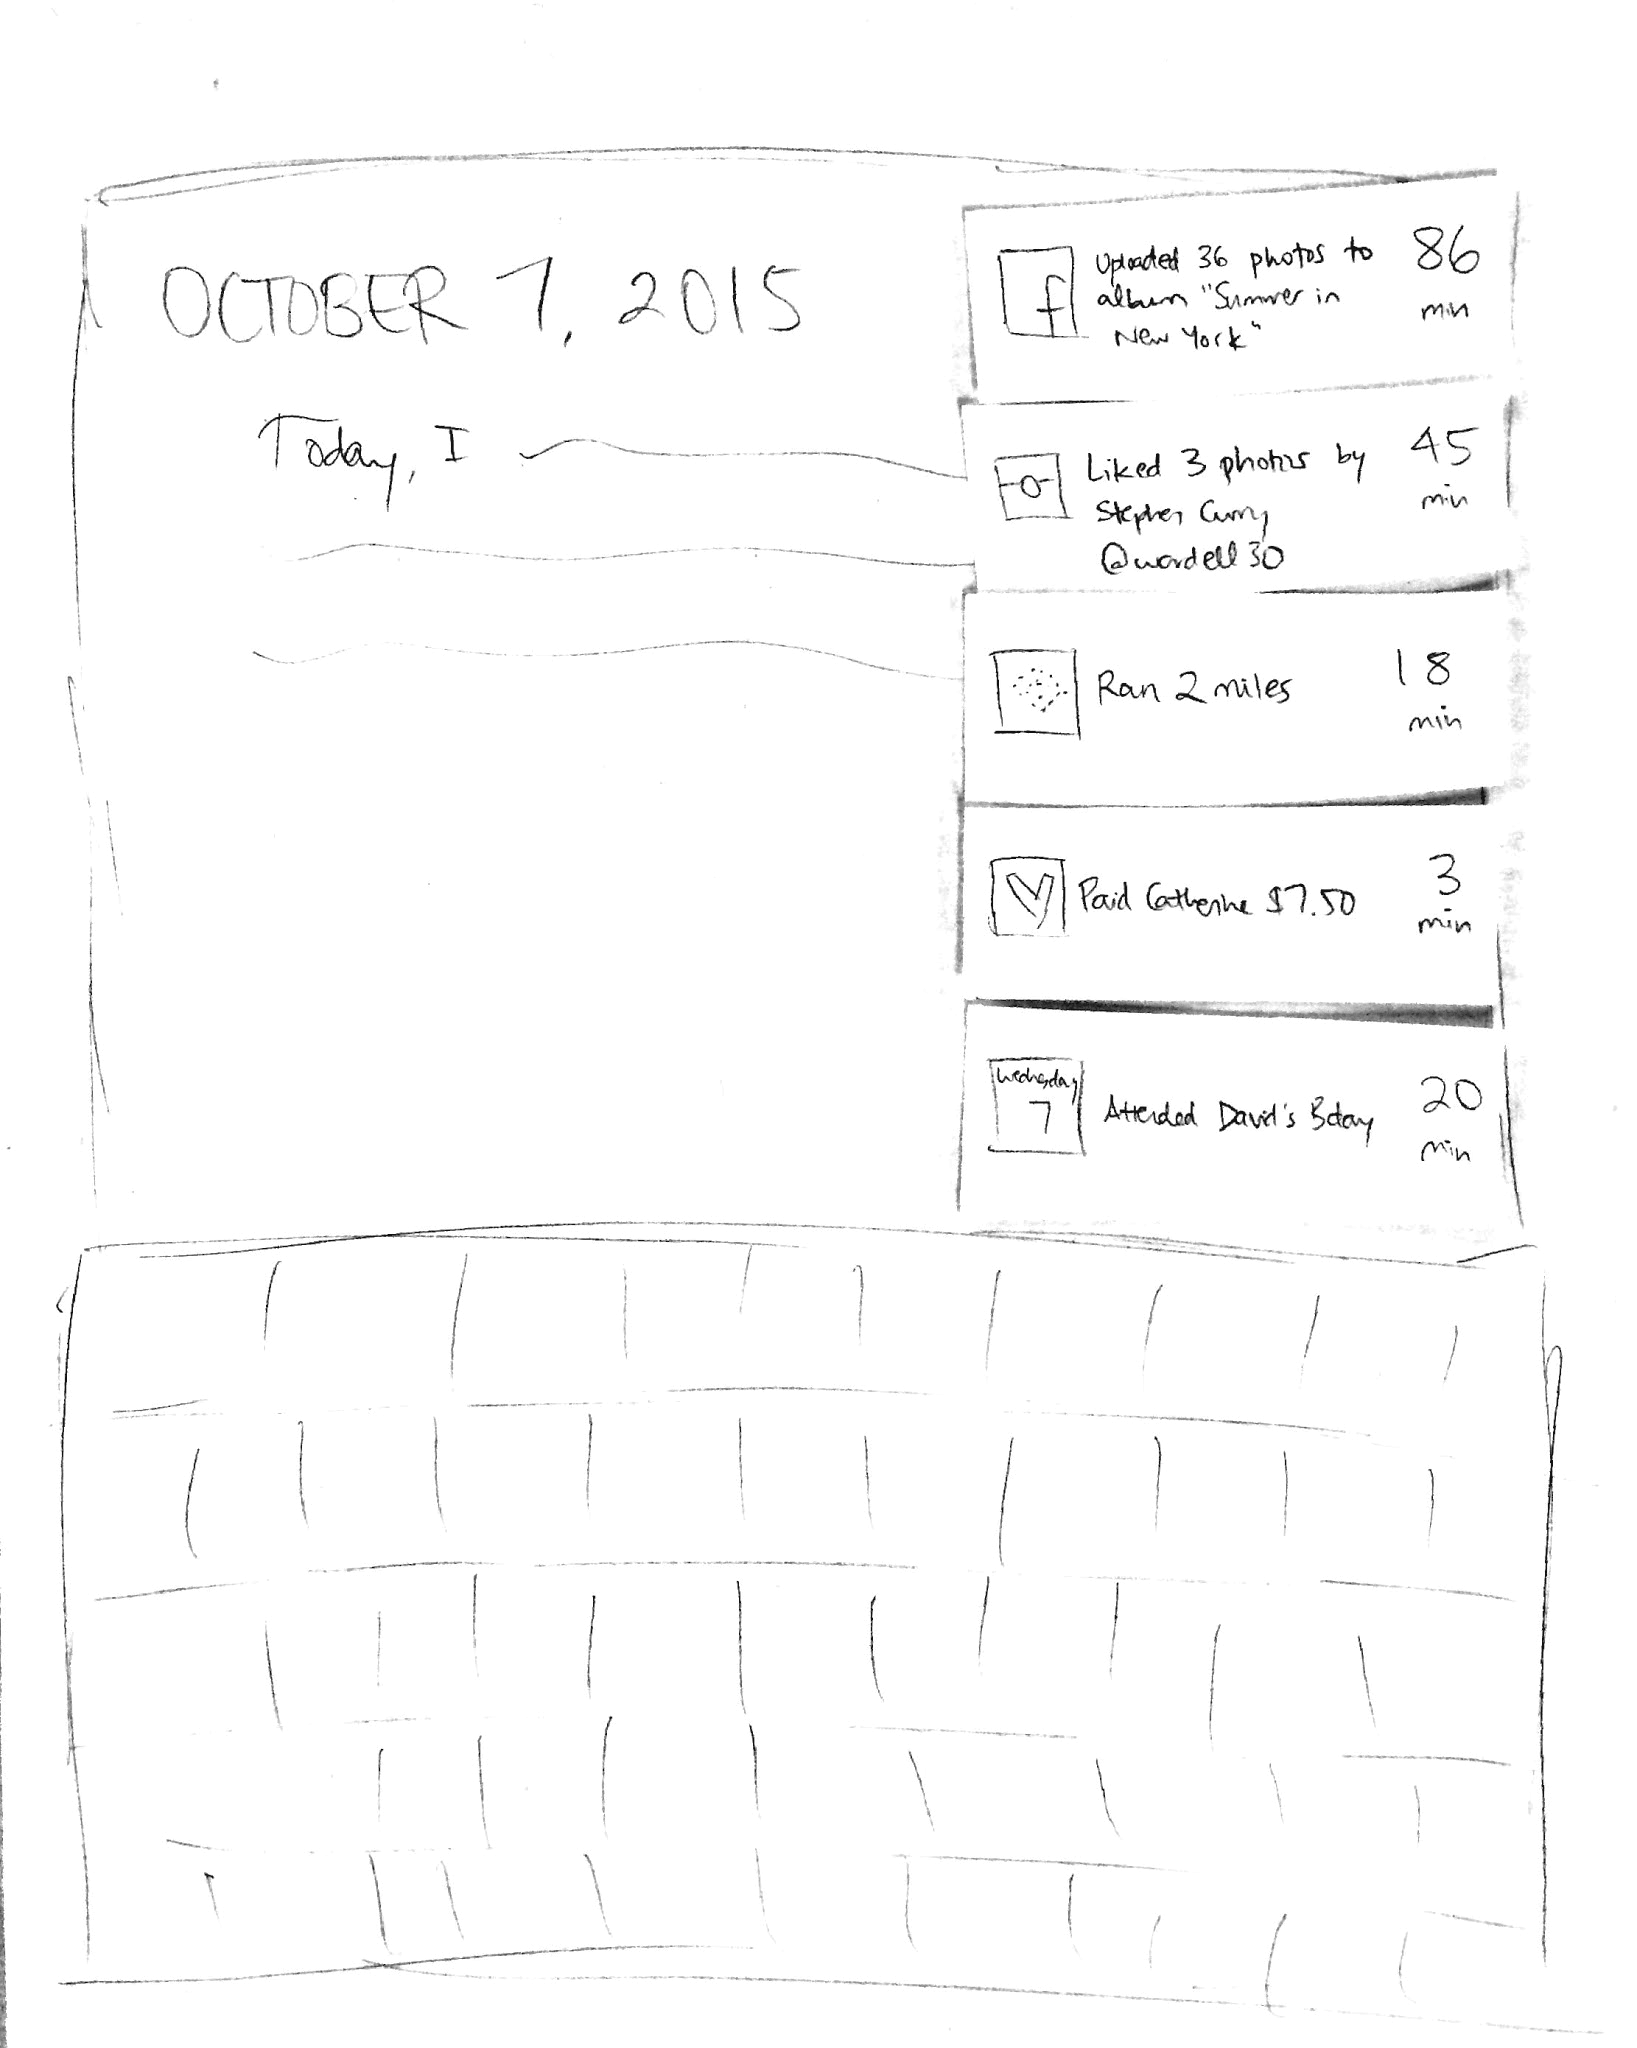 OCTOBER 7, 2015
Today, I
f
Uploaded 36 photos to
album "Summer in
New York"
86
min
Liked 3 photos by
Stephen Curry
@wardell30
45
min
Ran 2 miles
18
min
V
Paid Catherine $7.50
3
min
Wednesday
7
Attended David's Bday
20
min